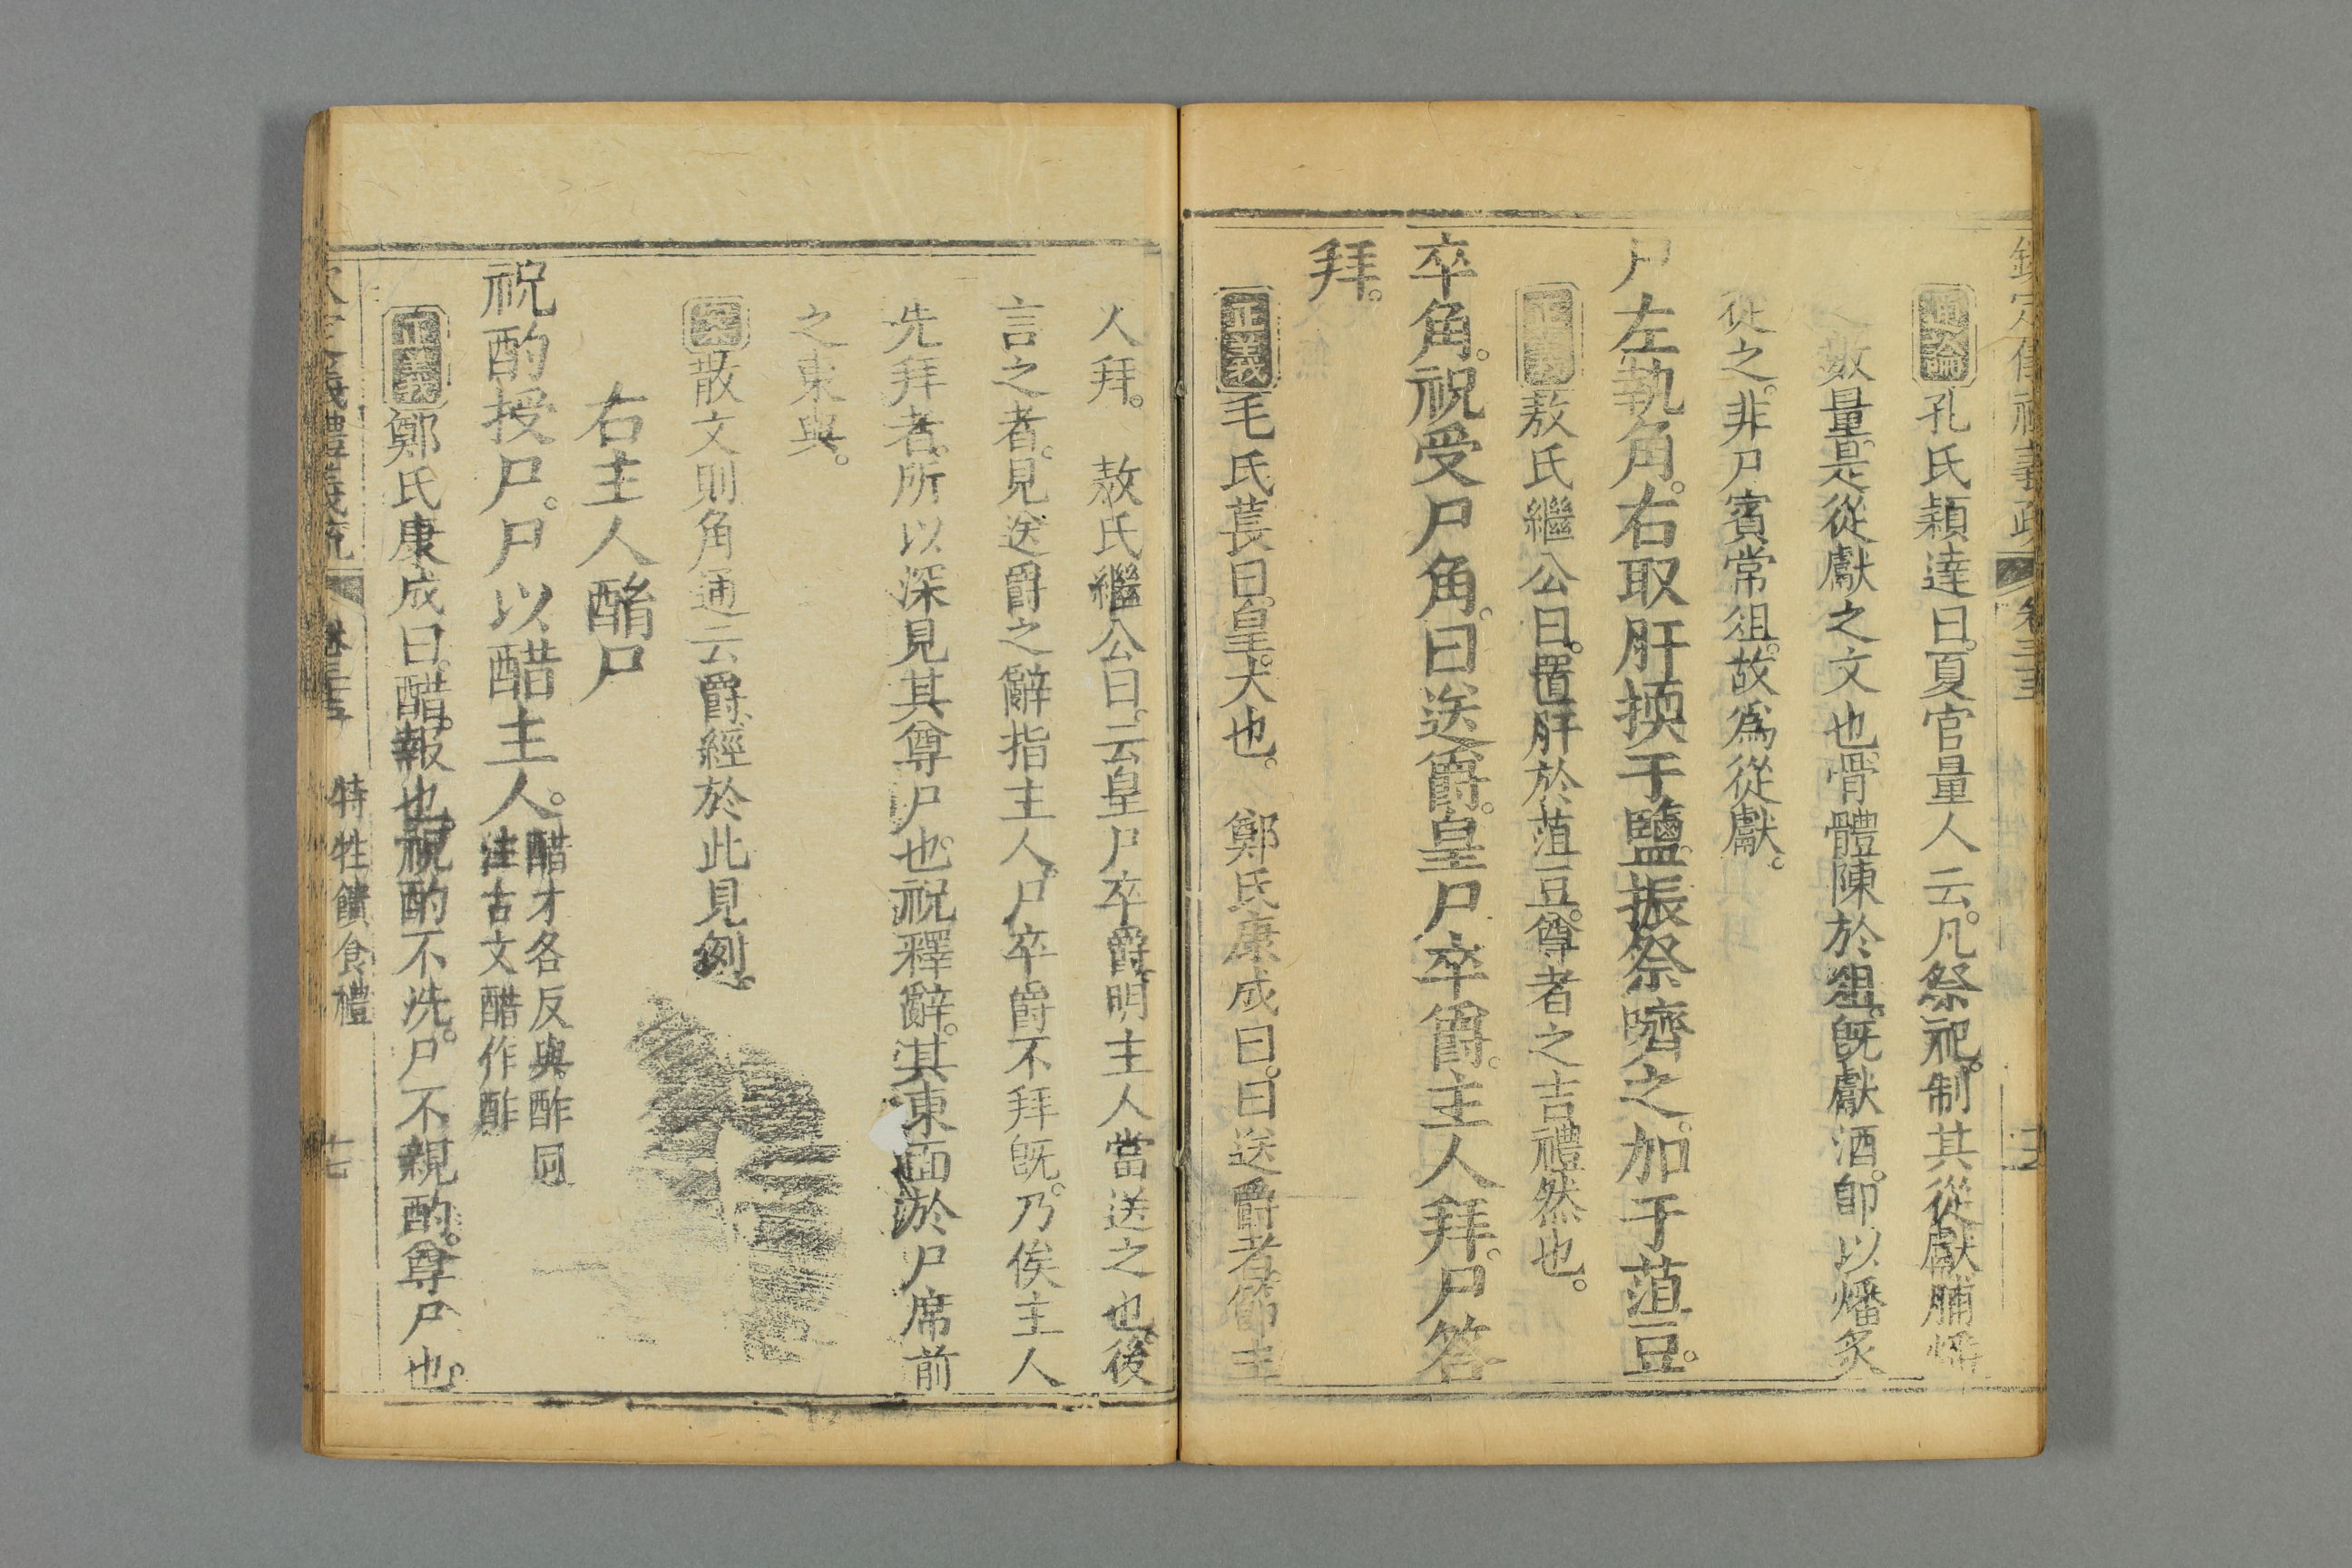 通論孔氏穎達曰。夏官量人云。凡祭祀。制其從獻脯燔
之數量。是從獻之文也。骨體陳於俎。旣獻酒。卽以燔炙
從之。非尸賓常俎。故爲從獻。
尸左執角。右取肝擩于鹽。振祭嚌之。加于菹豆。
正義敖氏繼公曰。置肝於菹豆。尊者之吉禮然也。
卒角。祝受尸角。曰送爵。皇尸卒爵。主人拜。尸答
拜。
正義毛氏萇曰。皇。大也。 鄭氏康成曰。曰送爵者。節主
人拜。 敖氏繼公曰。云皇尸卒爵。明主人當送之也。後
言之者。見送爵之辭指主人。尸卒爵不拜旣。乃俟主人
先拜者。所以深見其尊尸也。祝釋辭。其東面於尸席前
之東與。
散文則角通云爵。經於此見例。
右主人酳尸
祝酌授尸。尸以醋主人。醋才各反與酢同
注古文醋作酢
正義鄭氏康成曰。醋。報也。祝酌不洗。尸不親酌。尊尸也。
特牲饋食禮